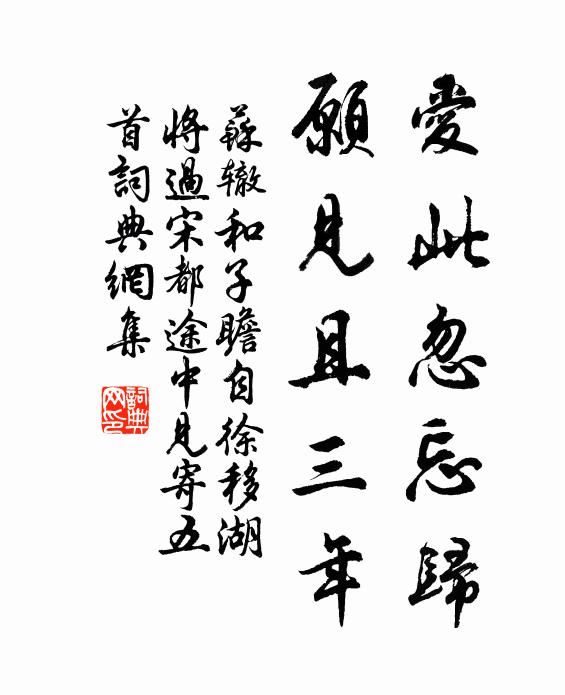 愛此忽忘歸
願見且三年
蘇辙和子瞻自徐移湖
將過宋都途中見寄五
首詞典網集
詞典
网印